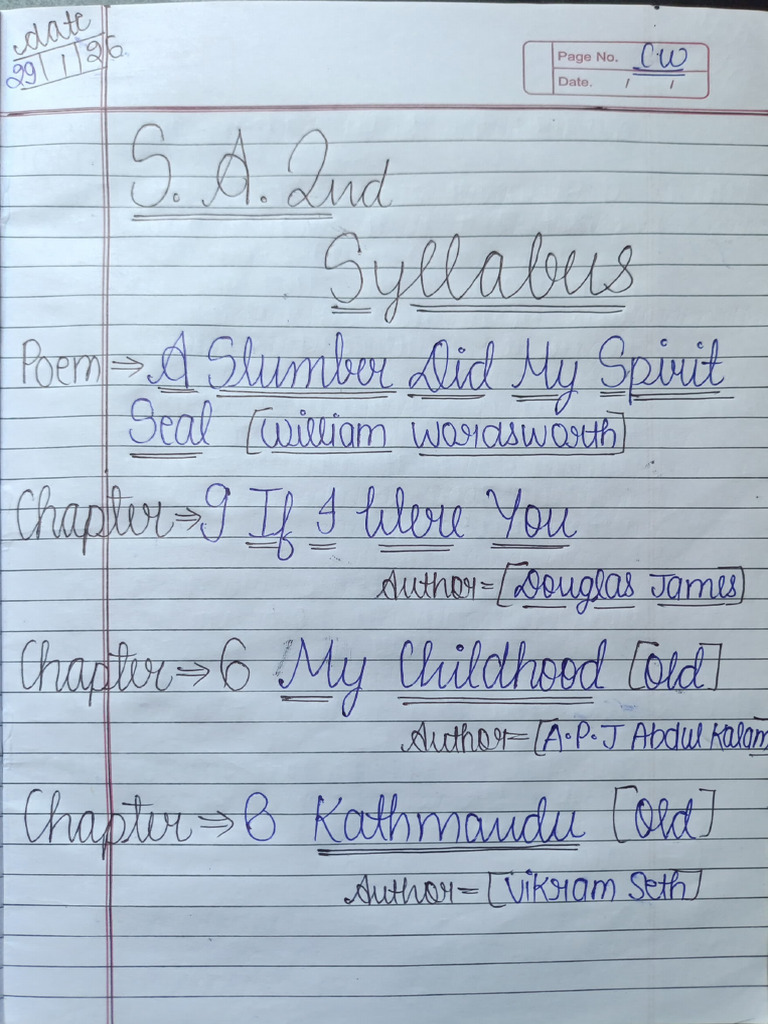 date
29/1/26
Page No. CW
Date. / /
S. A. 2nd
Syllabus
Poem ⇒ A Slumber Did My Spirit
Seal [William Wordsworth]
Chapter ⇒ 9 If I Were You
Author = [Douglas James]
Chapter ⇒ 6 My Childhood [Old]
Author = [A.P.J Abdul Kalam
Chapter ⇒ 8 Kathmandu [Old]
Author = [Vikram Seth]